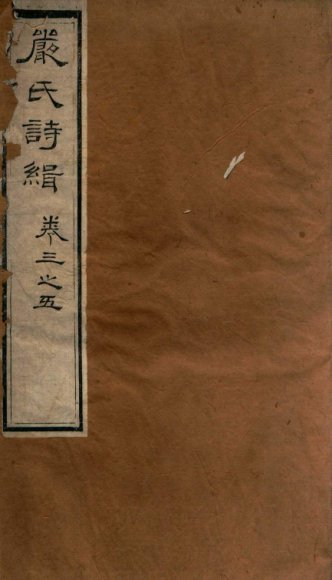 嚴氏詩緝 卷三之五